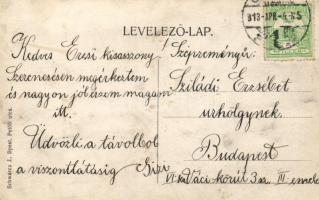 LEVELEZŐ-LAP.
913-APR.-4.
Kedves Erzsi kisasszony
Szerencsésen megérkeztem
és nagyon jól érzem magam
itt.
Üdvözli a távolból
a viszontlátásig Gizi
Szépreményű
Sziládi Erzsébet
urhölgynek.
Budapest
VI. ker. Váci körút 3 sz. III emelet